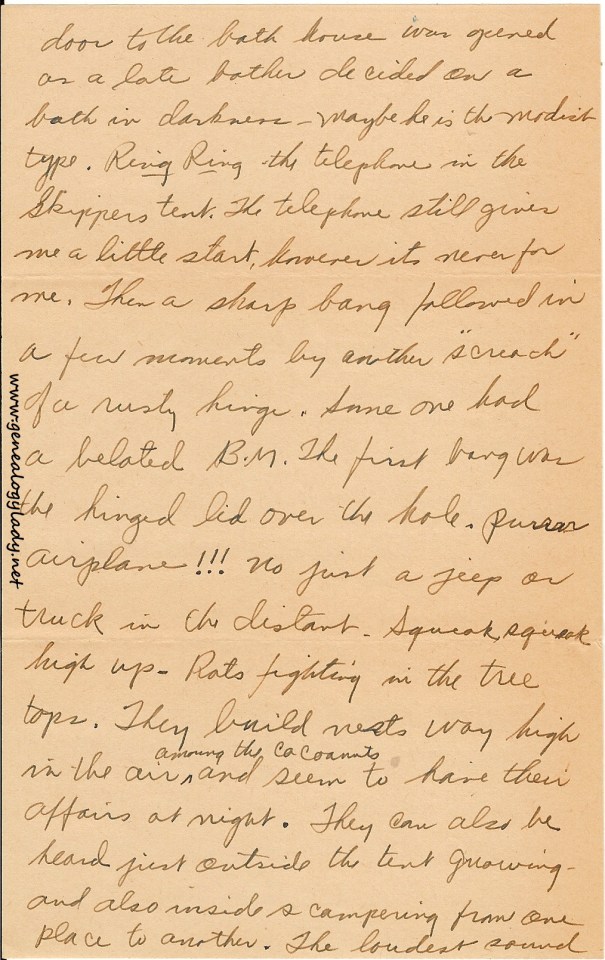 door to the bath house was opened
as a late bather decided on a
bath in darkness - maybe he is the modist
type. Ring Ring the telephone in the
Skippers tent. The telephone still gives
me a little start, however its never for
me. Then a sharp bang followed in
a few moments by another "screach"
of a rusty hinge. Some one had
a belated B.M. The first bang was
the hinged lid over the hole. purrrr
airplane!!! No just a jeep or
truck in the distant - Squeak, squeak
high up - Rats fighting in the tree
tops. They build nests way high
amoung the cocoanuts
in the air ^ and seem to have their
affairs at night. They can also be
heard just outside the tent gnowing -
and also inside scampering from one
place to another. The loudest sound
www.genealogylady.net